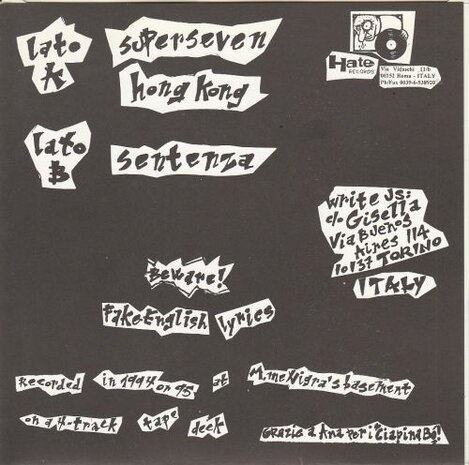 lato A
superseven
hong kong
Hate RECORDS
Via Vidaschi 11/b
00152 Roma - ITALY
Ph/Fax 0039-6-538920
lato B
sentenza
write us:
c/o Gisella
Via Buenos
Aires 114
10137 TORINO
ITALY
Beware!
Fake English lyrics
Recorded in 1994 or 95 at M.me Nigra's basement
on a 4-track tape deck
Grazie a Ana per i "Ciapina Bg!